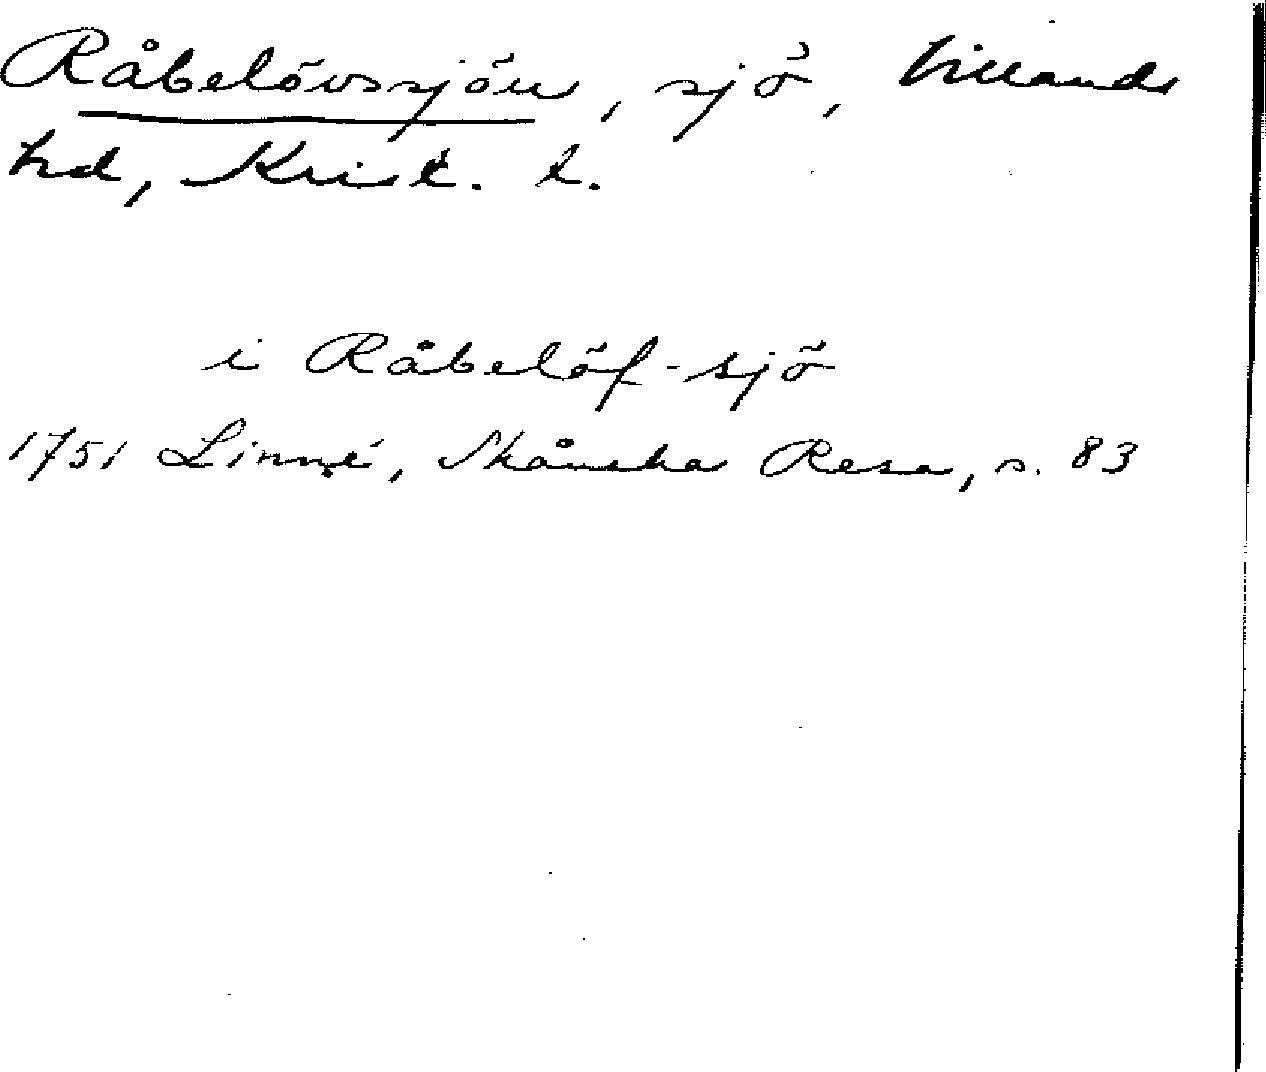 Råbelövssjön, sjö, Villands
hd, Krist. l.
i Råbelöf-sjö
1751 Linné, Skånska Resa, s. 83